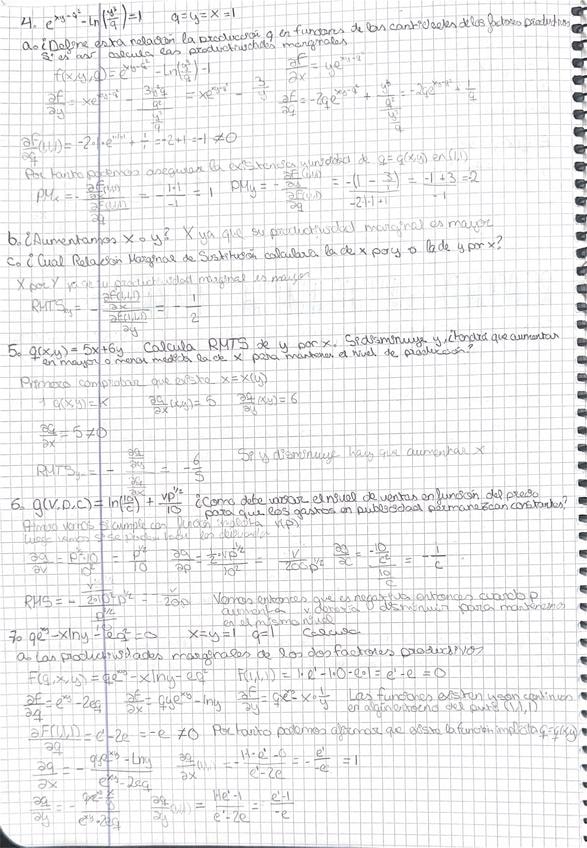 4. e^{xy-q²} - Ln(y³/q) = 1   q=y=x=1
a. ¿Define esta relación la producción q en funciones de las cantidades de los factores productivos
Si es así calcula las productividades marginales
f(x,y,q) = e^{xy-q²} - Ln(y³/q) - 1   ∂F/∂x = ye^{xy-q²}
∂F/∂y = xe^{xy-q²} - = xe^{xy-q²} - 3/y   ∂F/∂q = -2qe^{xy-q²} + = -2qe^{xy-q²} + 1/q
∂F/∂q (1,1,1) = + 1/1 = -2+1 = -1 ≠ 0
Por tanto podemos asegurar la existencia y unicidad de q=q(x,y) en (1,1)
PMx = - = - 1·1/-1 = 1   PMy = - = = -1+3/-1 = 2
b. ¿Aumentamos x o y? X ya que su productividad marginal es mayor
c. ¿Cual Relación Marginal de Sustitución calculara la de x por y o la de y por x?
X por Y ya que su productividad marginal es mayor
RMTS = - ∂F(1,1,1)/∂x / ∂F(1,1,1)/∂y = - 1/2
5. q(x,y) = 5x+6y Calcula RMTS de y por x. Si disminuye y, ¿tendrá que aumentar
en mayor o menor medida la de x para mantener el nivel de producción?
Primero comprobar que existe x=x(y)
q(x,y)=K   ∂q/∂x (x,y) = 5   ∂q/∂y (x,y) = 6
∂q/∂x = 5 ≠ 0
RMTS = - ∂q/∂y / ∂q/∂x = - 6/5   Si y disminuye hay que aumentar x
6. g(V,P,C) = ln(10/C) + VP^{1/2}/10 ¿Como debe variar el nivel de ventas en función del precio
para que los gastos en publicidad permanezcan constantes?
vamos si cumple con función implícita V(p)
∂g/∂v = = P^{1/2}/10   ∂g/∂p = =   ∂g/∂c = = - 1/c
RMS = - = - v/20p   Vemos entonces que es negativa entonces cuando p
aumenta v debería disminuir para mantenernos
en el mismo nivel
7. qe^{xy} - xlny - eq² = 0   x=y=1   q=1   Calcula
a. Las productividades marginales de los dos factores productivos
F(q,x,y) = qe^{xy} - xlny - eq²   F(1,1,1) = 1·e¹ - 1·0 - e·1 = e¹ - e = 0
∂F/∂q = e^{xy} - 2eq   ∂F/∂x = qye^{xy} - lny   ∂F/∂y = Las funciones existen y son continuas
en algún entorno del punto (1,1,1)
∂F(1,1,1)/∂q = e¹ - 2e = -e ≠ 0   Por tanto podemos afirmar que existe la función implícita q=q(x,y)
∂q/∂x = - qye^{xy} - Lny / e^{xy} - 2eq   ∂q/∂x (1,1) = - 1·1·e¹ - 0 / e¹ - 2e = - e¹/-e = 1
∂q/∂y = -   ∂q/∂y (1,1) = 1·1e¹ - 1 / e¹ - 2e = e¹ - 1 / -e